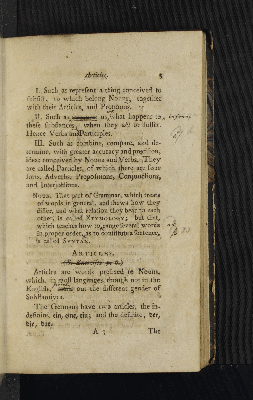 Articles. 5
I. Such as represent a thing conceived to
subsist, to which belong Nouns, together
with their Articles, and Pronouns.
II. Such as us, what happens to
these substances, when they act or suffer.
Hence Verbs and Participles.
III. Such as combine, compare, and de-
termine, with greater accuracy and precision,
ideas conceived by Nouns and Verbs. They
are called Particles, of which there are four
sorts, Adverbs, Prepositions, Conjunctions,
and Interjections.
NOTA. That part of Grammar, which treats
of words in general, and shews how they
differ, and what relation they bear to each
other, is called ETYMOLOGY; but that,
which teaches how to range several words
in proper order, as to constitute a sentence,
is called SYNTAX.
ARTICLES.
Articles are words prefixed to Nouns,
which, in most languages, though not in the
English, out the different gender of
Substantives.
The Germans have two articles, the in-
definite, ein, eine, ein; and the definite, der,
die, das.
A 3 The